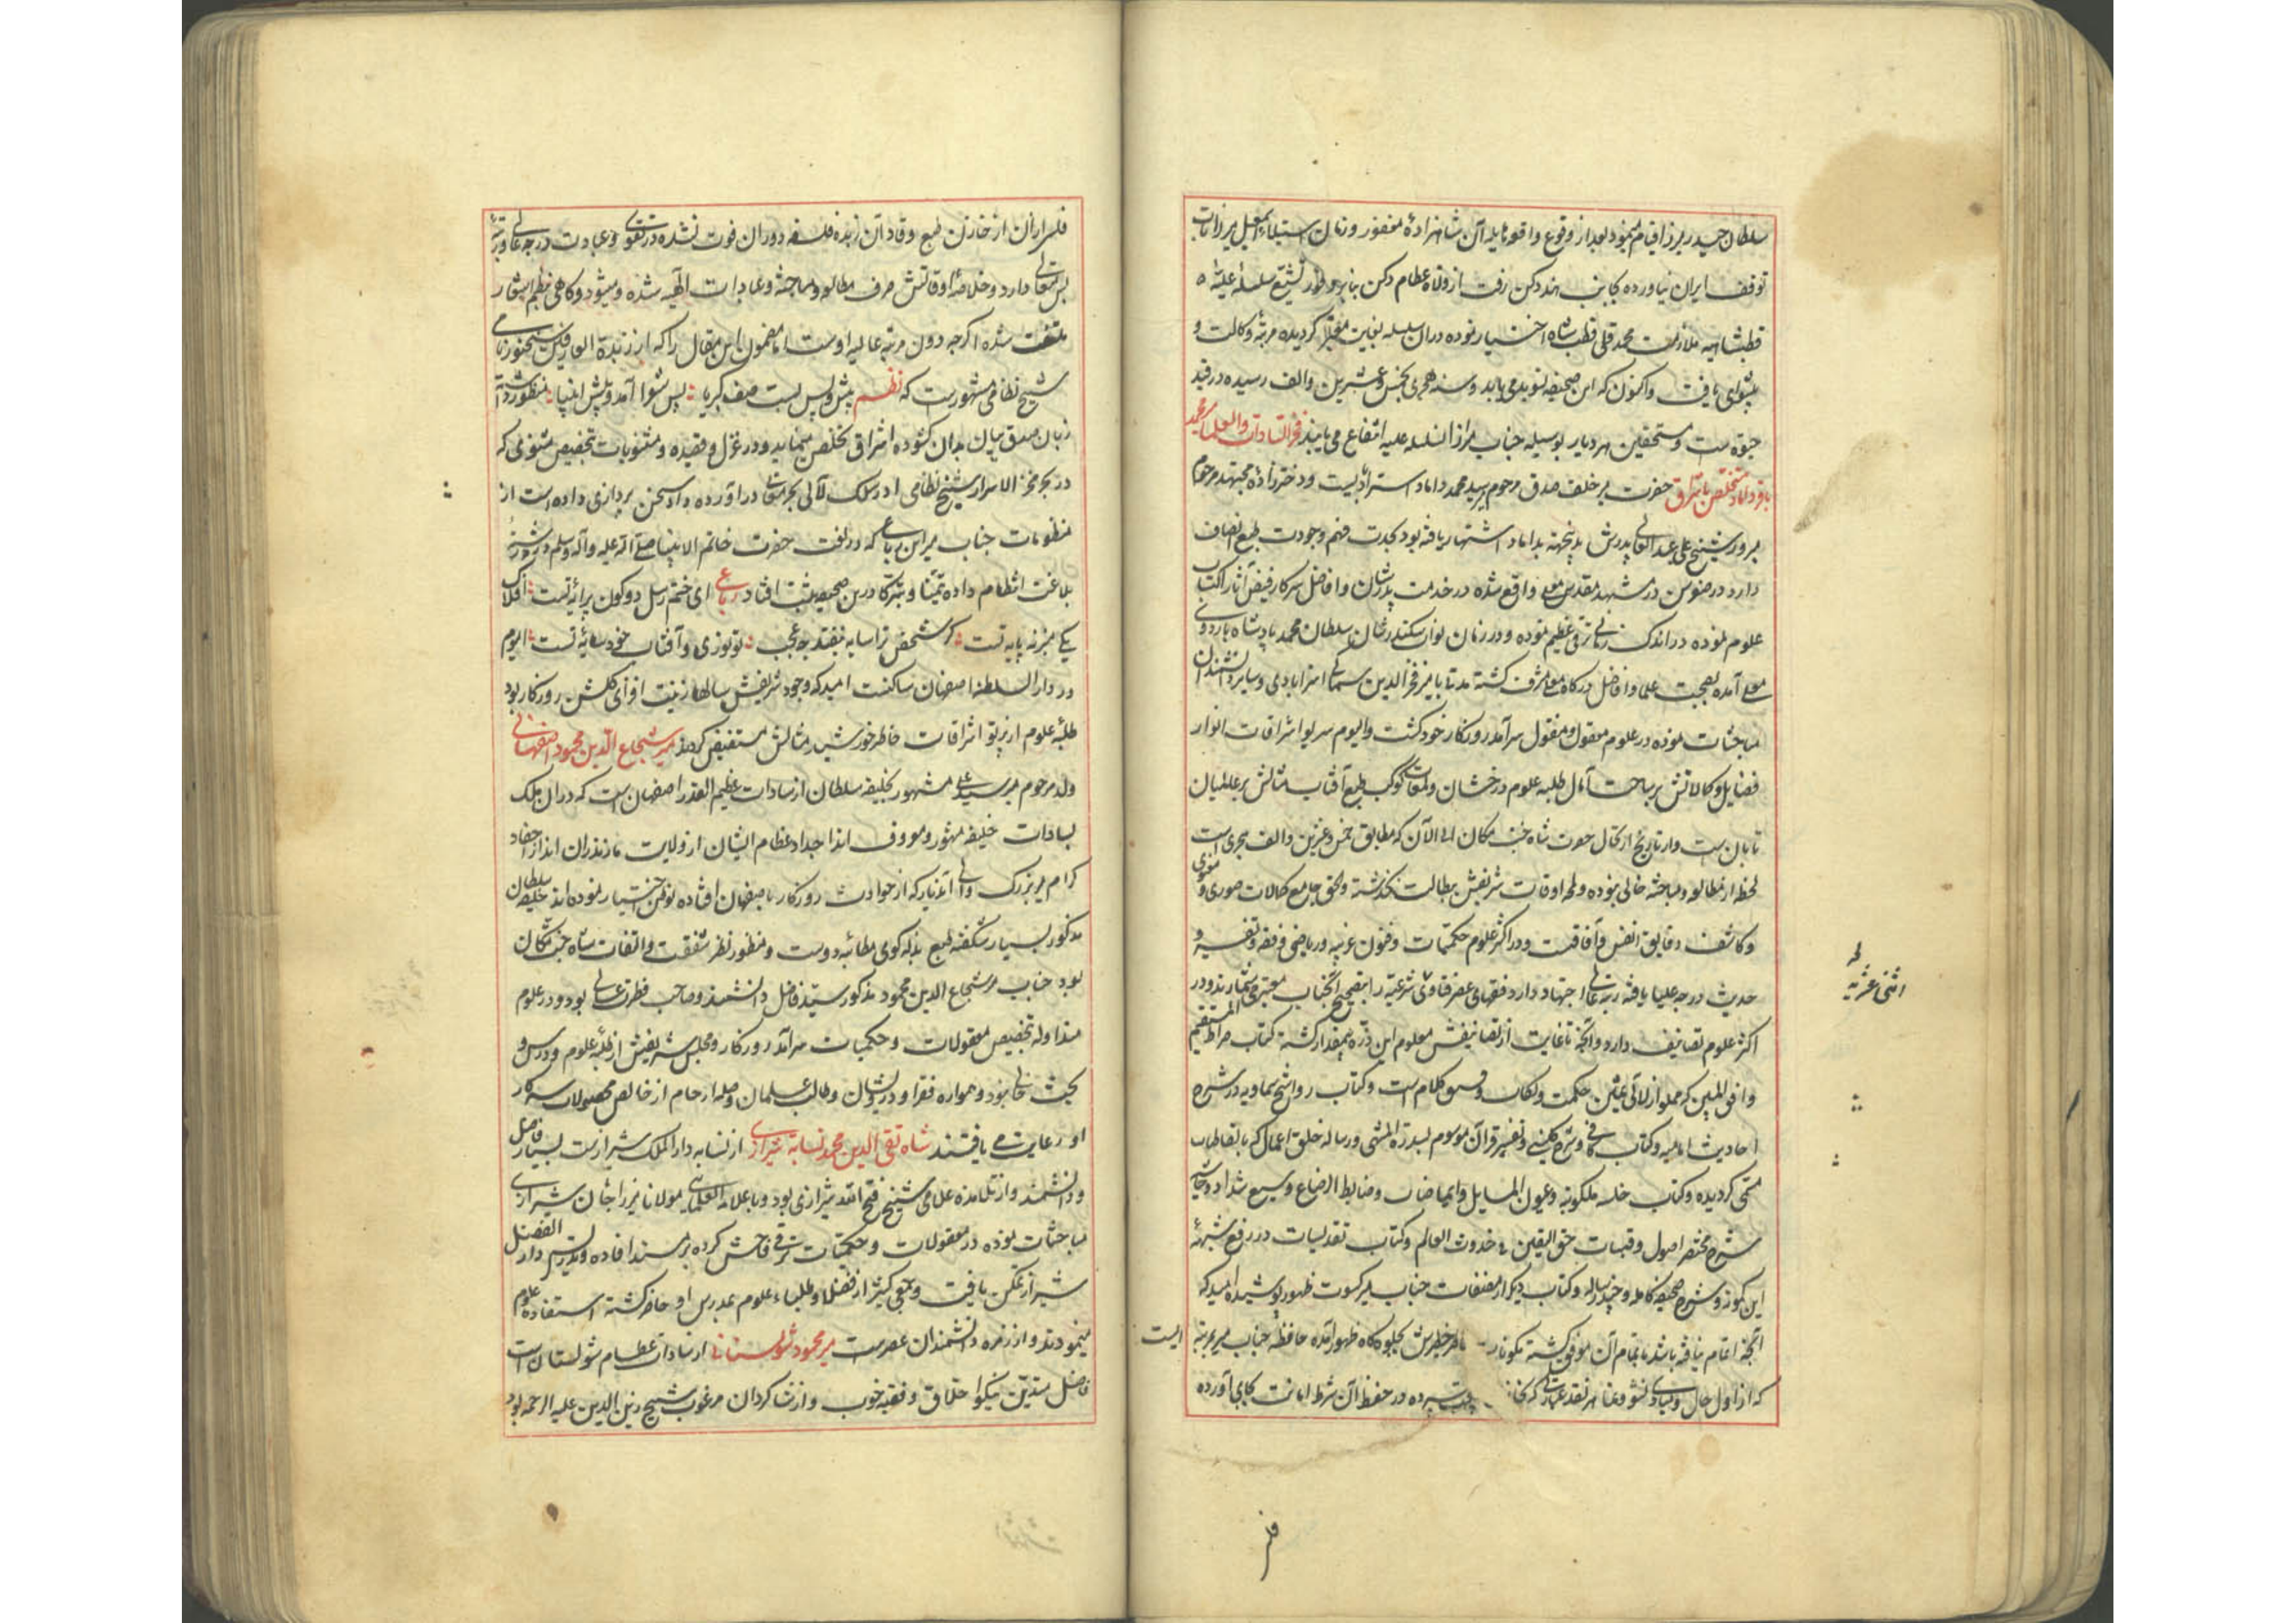 سلطان حیدر میرزا قیام مینمود بعد از وقوع واقعه هایله آن شاهزادهٔ مغفور و زمان استیلاء اسمعیل میرزا تاب
توقف ایران نیاورده بجانب هند دکن رفت از ولاة عظام دکن بنابر وفور تشیّع سلسلهٔ علیّهٔ
قطبشاهیه ملازمت محمد قلی قطب شاه اختیار نموده در ان سلسله بغایت معتبر کردیده مرتبهٔ وکالت و
پیشوای یافت واکنون که این صحیفه تسوید می یابد و سنه هجری بخمس وعشرین والف رسیده در قید
حیوة ست ومستحقین هر دیار بوسیله جناب میر از ان سلسله علیه انتفاع می یابند فخر السادات والعلما میر محمد
باقر داماد متخلص باشراق حضرت میر خلف صدق مرحوم میر سید محمد داماد استرابادیست ودختر زادهٔ مجتهد مرحوم
مبرور شیخ علی عبد العالی پدرش بدینجهة بداماد اشتهار یافته بود بجدت فهم وجودت طبع اتصاف
دارد در صغر سن در مشهد مقدس معلی واقع شده در خدمت مدرسان وافاضل سرکار فیض آثار اکتساب
علوم نموده در اندک زمانی ترقی عظیم نموده ودر زمان نواب سکندر شان سلطان محمد پادشاه باردوی
معلی آمده بصحبت علما وافاضل درکاه معلی مشرف کشته مدتها با میر فخر الدین سماکی استرابادی وسایر دانشمندان
مباحثات نموده در علوم معقول ومنقول سرآمد روزکار خود کشت والیوم سر لوا اشراقات انوار
فضایل وکمالاتش بر ساحت آمال طلبه علوم درخشان ولمعات کوکب طبع آفتاب مثالش بر عالمیان
تابان ست واز تاریخ ارتحال حضرت شاه جنت مکان الی الآن که مطابق خمس وعشرین والف هجری است
لحظهٔ از مطالعه ومباحثه خالی نبوده ولمحهٔ اوقات شریفش ببطالت نکذشته والحق جامع کمالات صوری ومعنوی
وکاشف دقایق انفس وآفاقست ودر اکثر علوم حکمیات وفنون غریبه وریاضی وفقه وتفسیر و
حدیث درجه علیا یافته رتبه عالی اجتهاد دارد فقهای عصر فتاوی شرعیه را بتصحیح آنجناب معتبر میشمارند ودر
اکثر علوم تصانیف دارد وآنچه تا غایت از تصانیفش معلوم این ذره بیمقدار کشته کتاب صراط المستقیم
وافق المبین که مملو از لآلی ثمین حکمت ونکات وعمق کلام است وکتاب رواشح سماویه در شرح
احادیث امامیه وکتاب کافی وشرح کلینی وتفسیر قرآن موسوم بسدرة المنتهی ورساله خلق اعمال که بایقاظات
مسمی کردیده وکتاب خلسه ملکوتیه وعیون المسایل وایماضات وضابط الرضاع وسبع شداد وحاشیه
شرح مختصر اصول وقبسات حق الیقین فی حدوث العالم وکتاب تقدیسات در رفع شبههٔ
ابن کمونه وشرح صحیفه کامله وچند رساله وکتاب دیکر از مصنفات جناب میر کسوت ظهور پوشیده امید که
آنچه اتمام نیافته باشد باتمام آن موفق کشته مکونات خاطر خطیرش بجلوه کاه ظهور آمده حافظه جناب میر بمرتبه ایست
که از اول حال ومبادی نشو ونما هر نقد عبارتی که بخازن سپرده در حفظ آن شرط امانت بجای آورده
لمحهٔ
اثنی عشریه
فلس
فلسی از ان از خازن طبع وقاد آن زبدهٔ فلسفهٔ دوران فوت نشده در تقوی وعبادت درجه عالی ورتبهٔ
بس متعالی دارد وخلاصهٔ اوقاتش صرف مطالعه ومباحثه وعبادات الهیه شده ومیشود وکاهی بنظم اشعار
ملتفت شده اکرچه دون مرتبه عالیه اوست اما مضمون این مقال را که از زبدة العارفین سخنور نامی
شیخ نظامی مشهورست که نظم پیش وپسی بست صف کبریا پس شعرا آمد وپیش انبیا منظور داشته
زبان صدق بیان بدان کشوده اشراق تخلص مینماید ودر غزل وقصیده ومثنویات بتخصیص مثنوی که
در بحر مخزن الاسرار شیخ نظامی در سلک لآلی بحر معانی در اورده داد سخن پردازی داده است از
منظومات جناب میر این رباعی که در نعت حضرت خاتم الانبیا صلی الله علیه واله وسلم در رشتهٔ
بلاغت انتظام داده تیمنا وتبرکا درین صحیفه ثبت افتاد رباعی ای ختم رسل دو کون پیرایهٔ تست افلاک
یکی منبر نه پایهٔ تست کر شخص ترا سایه نیفتد چه عجب تو نوری وآفتاب خود سایهٔ تست الیوم
در دار السلطنه اصفهان ساکنست امید که وجود شریفش سالها زینت افزای کلشن روزکار بود
طلبه علوم از پرتو اشراقات خاطر خورشید مثالش مستفیض کردند میر شجاع الدین محمود اصفهانی
ولد مرحوم میر سید علی مشهور بخلیفه سلطان از سادات عظیم القدر اصفهان است که در ان ملک
بسادات خلیفه مشهور ومعروف اند اجداد عظام ایشان از ولایت مازندران اند از احفاد
کرام میر بزرک والی آندیار که از حوادث روزکار باصفهان افتاده توطن اختیار نموده اند خلیفه سلطان
مذکور بسیار شکفته طبع بذله کوی مطایبه دوست ومنظور نظر شفقت والتفات شاه جنت مکان
بود جناب میر شجاع الدین محمود مذکور سید فاضل دانشمند وصاحب فطرت عالی بود ودر علوم
متداوله بتخصیص معقولات وحکمیات سرآمد روزکار ومجلس شریفش از طلبه علوم ودرس و
بحث خالی نبود وهمواره فقرا ودرویشان وطالب علمان وصله ارحام از خالص محصولات سرکار
او رعایت می یافتند شاه تقی الدین محمد نسابهٔ شیرازی از نسابه دار الملک شیرازست بسیار فاضل
ودانشمند واز تلامذه علامی شیخ فتح الله شیرازی بود وبا علامة العلمایی مولانا میرزا جان شیرازی
مباحثات نموده در معقولات وحکمیات ترقی فاحش کرده بر مسند افاده وتدریس دار الفضل
شیراز تمکن یافت وجمعی کثیر از فضلا وطلباء علوم بمدرس او حاضر کشته استفاده علوم
مینمودند واز زمره دانشمندان عصرست میر محمود شولستانی از سادات عظام شولستان است
فاضل متدین نیکو اخلاق وفقیه خوب واز شاکردان مرغوب شیخ زین الدین علیه الرحمه بود